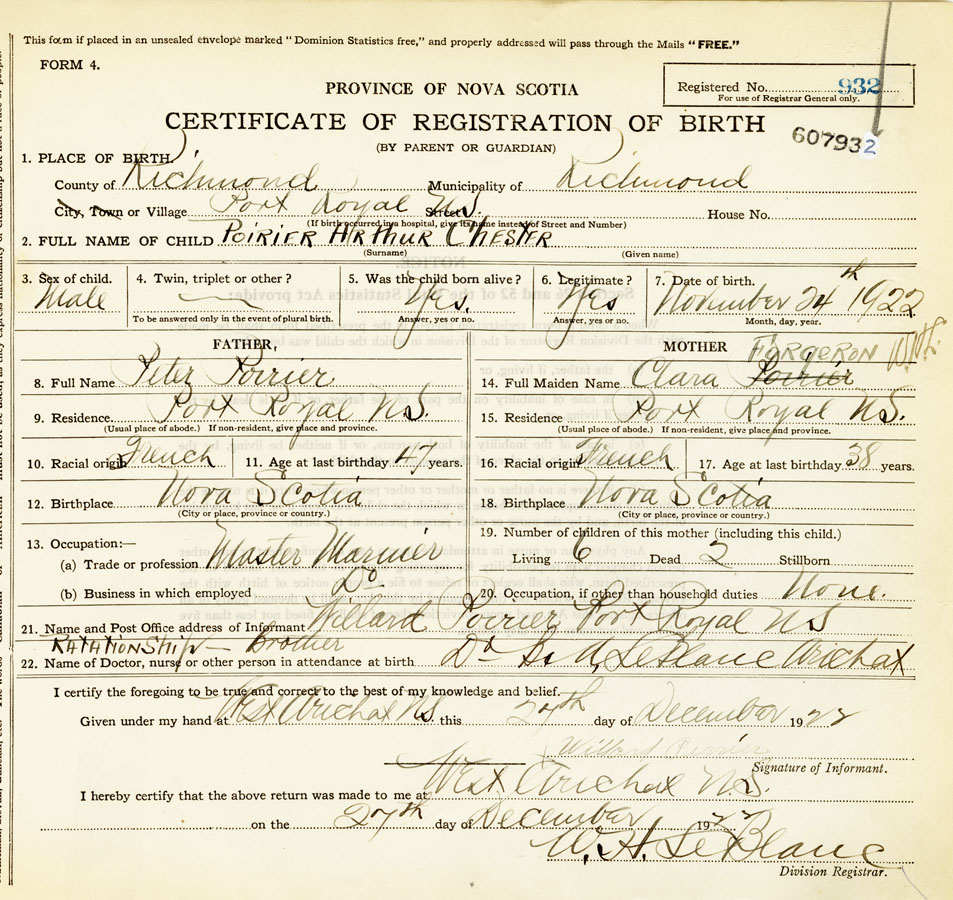 This form if placed in an unsealed envelope marked "Dominion Statistics free," and properly addressed will pass through the Mails "FREE."
FORM 4.
PROVINCE OF NOVA SCOTIA
Registered No. 932
For use of Registrar General only.
CERTIFICATE OF REGISTRATION OF BIRTH
(BY PARENT OR GUARDIAN)
607932
1. PLACE OF BIRTH
County of Richmond Municipality of Richmond
City, Town or Village Port Royal N.S. Street House No.
(If birth occurred in a hospital, give its name instead of Street and Number)
2. FULL NAME OF CHILD POIRIER ARTHUR CHESTER
(Surname) (Given name)
3. Sex of child. 4. Twin, triplet or other? 5. Was the child born alive? 6. Legitimate? 7. Date of birth.
Male Yes. Yes November 24th 1922
To be answered only in the event of plural birth. Answer, yes or no. Answer, yes or no. Month, day, year.
FATHER, MOTHER FORGERON
8. Full Name Peter Poirier 14. Full Maiden Name Clara Poirier
9. Residence Port Royal N.S. 15. Residence Port Royal N.S.
(Usual place of abode.) If non-resident, give place and province. (Usual place of abode.) If non-resident, give place and province.
10. Racial origin French 11. Age at last birthday 47 years. 16. Racial origin French 17. Age at last birthday 38 years.
12. Birthplace Nova Scotia 18. Birthplace Nova Scotia
(City or place, province or country.) (City or place, province or country.)
13. Occupation:— 19. Number of children of this mother (including this child.)
(a) Trade or profession Master Marinier Living 6 Dead 2 Stillborn
(b) Business in which employed Do. 20. Occupation, if other than household duties None.
21. Name and Post Office address of Informant Willard Poirier Port Royal N S
RATATIONSHIP — Brother
22. Name of Doctor, nurse or other person in attendance at birth Dr A. LeBlanc Arichat
I certify the foregoing to be true and correct to the best of my knowledge and belief.
Given under my hand at West Arichat N.S. this 27th day of December 1922
Willard Perrier
Signature of Informant.
I hereby certify that the above return was made to me at West Arichat N.S.
on the 27th day of December 1922
W. H. LeBlanc
Division Registrar.